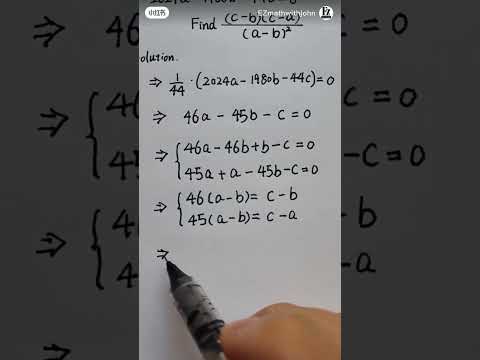 小红书 EZmathwithjohn
Find (c-b)(c-a) / (a-b)²
olution.
⇒ 1/44 · (2024a - 1980b - 44c) = 0
⇒ 46a - 45b - c = 0
⇒ { 46a - 46b + b - c = 0
45a + a - 45b - c = 0
⇒ { 46(a-b) = c - b
45(a-b) = c - a
⇒